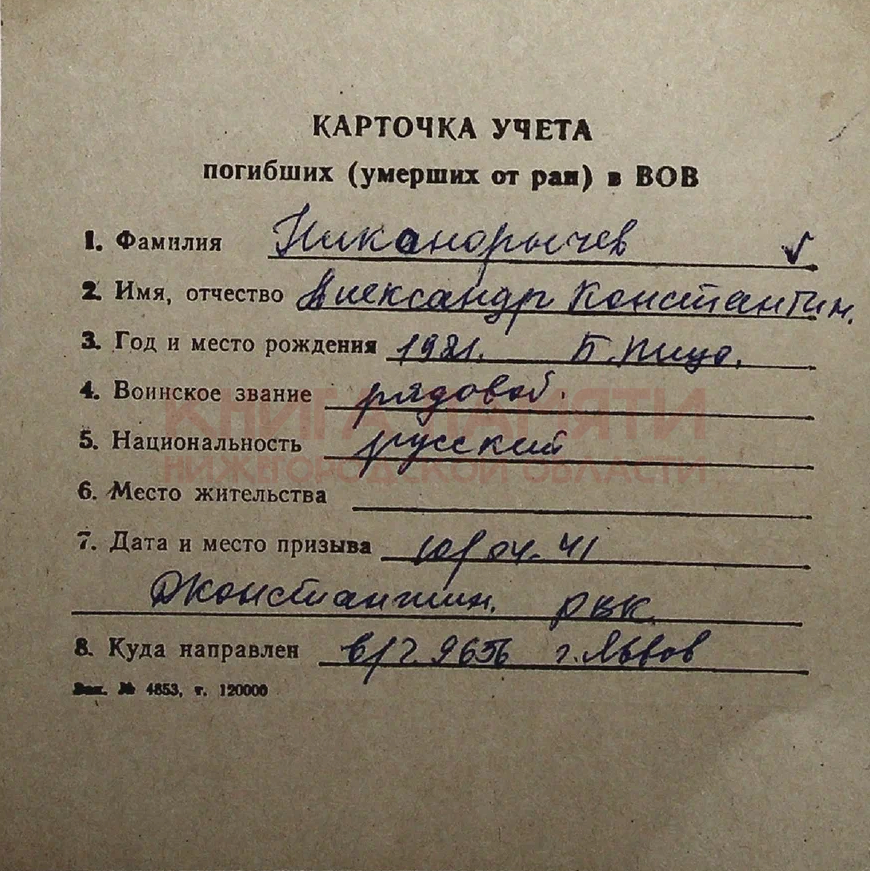 КАРТОЧКА УЧЕТА
погибших (умерших от ран) в ВОВ
1. Фамилия Никанорычев
2. Имя, отчество Александр Константин.
3. Год и место рождения 1921. Б. Пицо.
4. Воинское звание рядовой.
5. Национальность русский
КНИГА ПАМЯТИ
НИЖЕГОРОДСКОЙ ОБЛАСТИ
6. Место жительства
7. Дата и место призыва 10/04.41
Дконстантин. РВК
8. Куда направлен в/ч 9656 г. Львов
Зак. № 4853, т. 120000